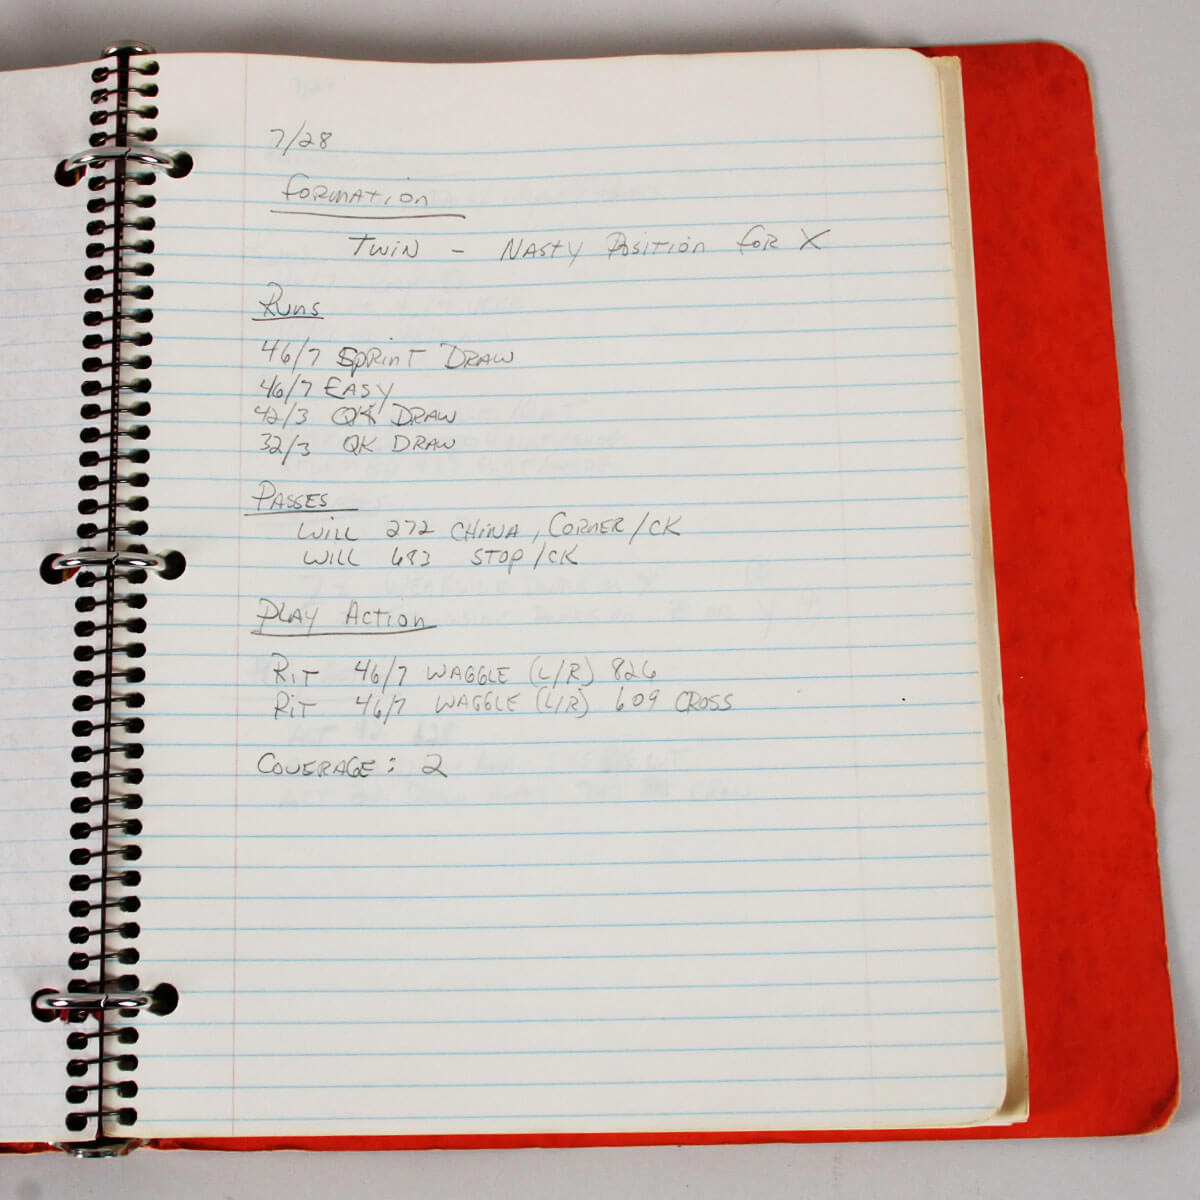 7/28
Formation
Twin - Nasty Position for X
Runs
46/7 Sprint Draw
46/7 Easy
42/3 QK Draw
32/3 QK Draw
Passes
Will 272 China, Corner/CK
Will 683 Stop/CK
Play Action
Rit 46/7 Waggle (L/R) 826
Rit 46/7 Waggle (L/R) 609 Cross
Coverage: 2